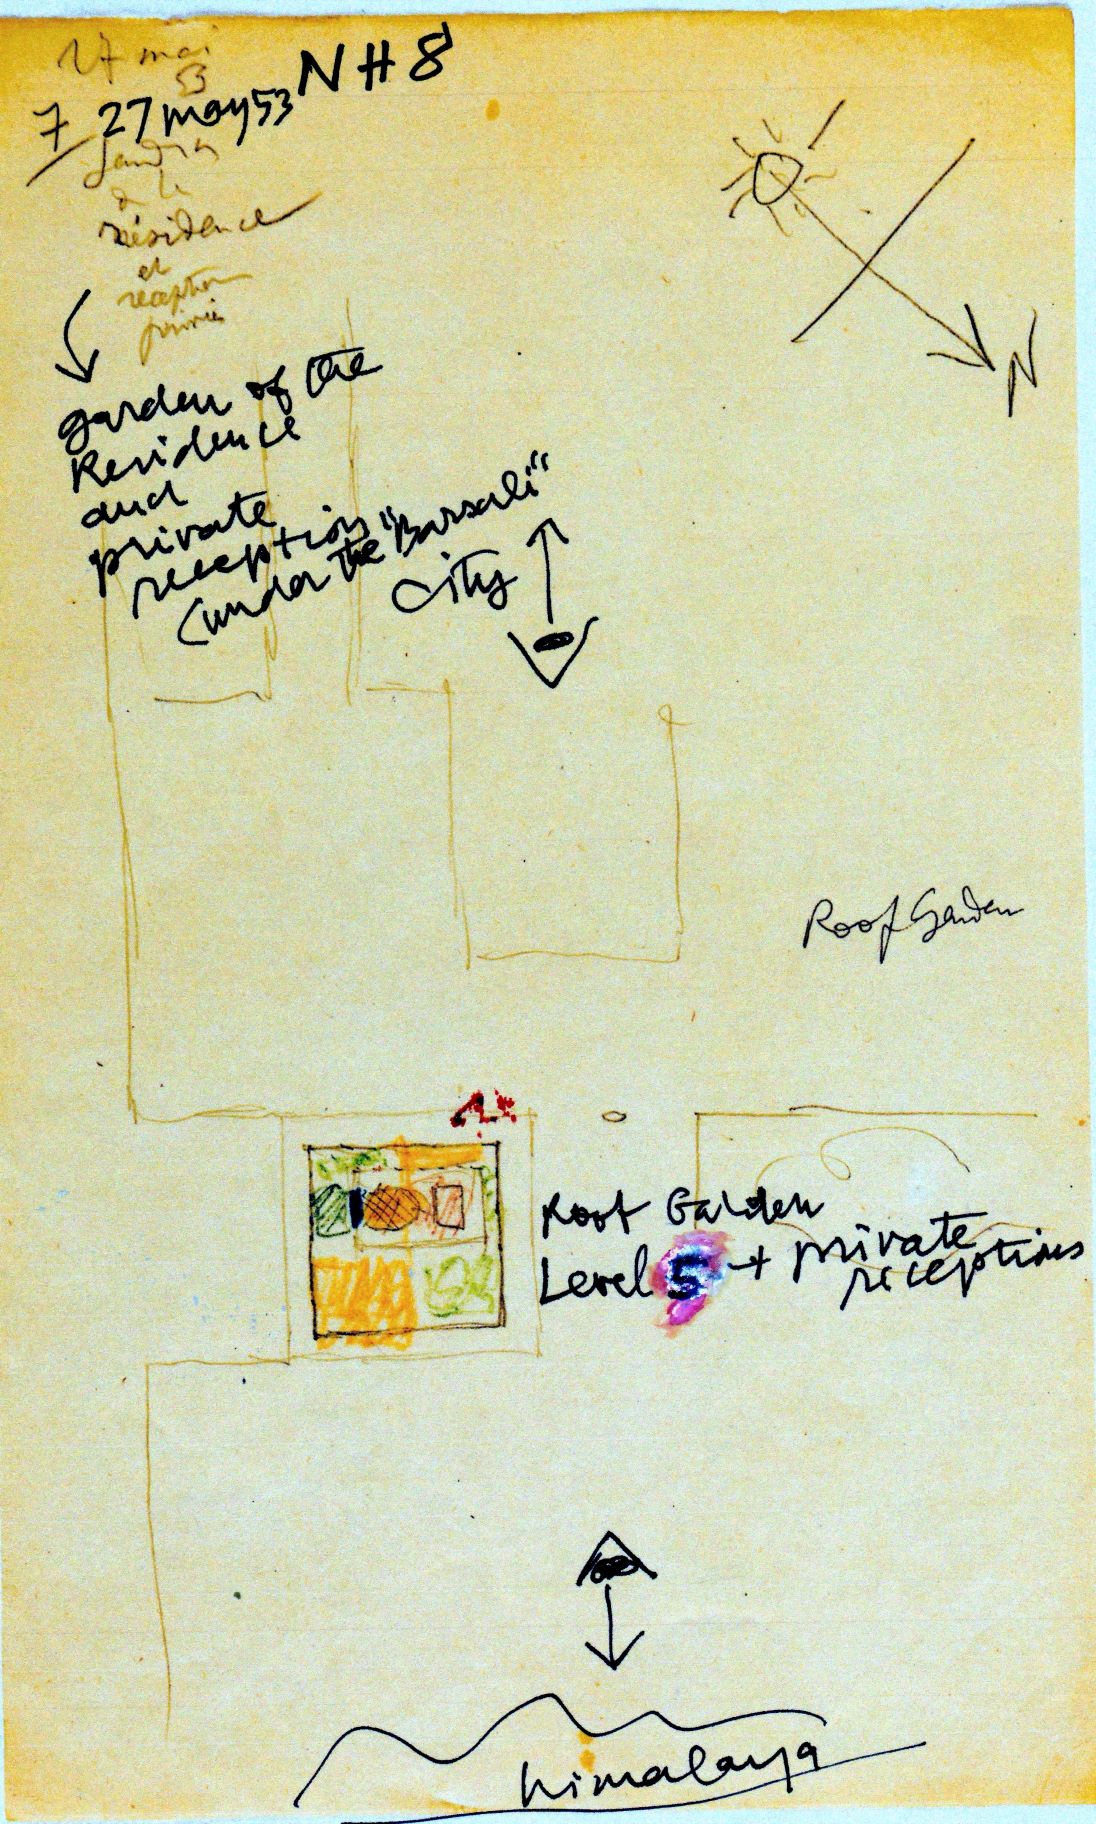 17 mai
53
NH8
7 27 may 53
à la
résidence
et
réception
garden of the
Residence
and
private
reception
(under the "Barsali"
City
N
Roof Garden
Roof Garden
Level 5 + private
receptions
himalaya